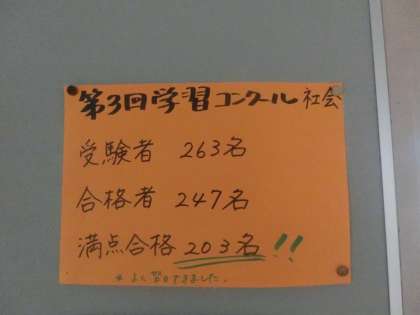 第3回学習コンクール 社会
受験者 263名
合格者 247名
満点合格 203名!!
よく習できました。